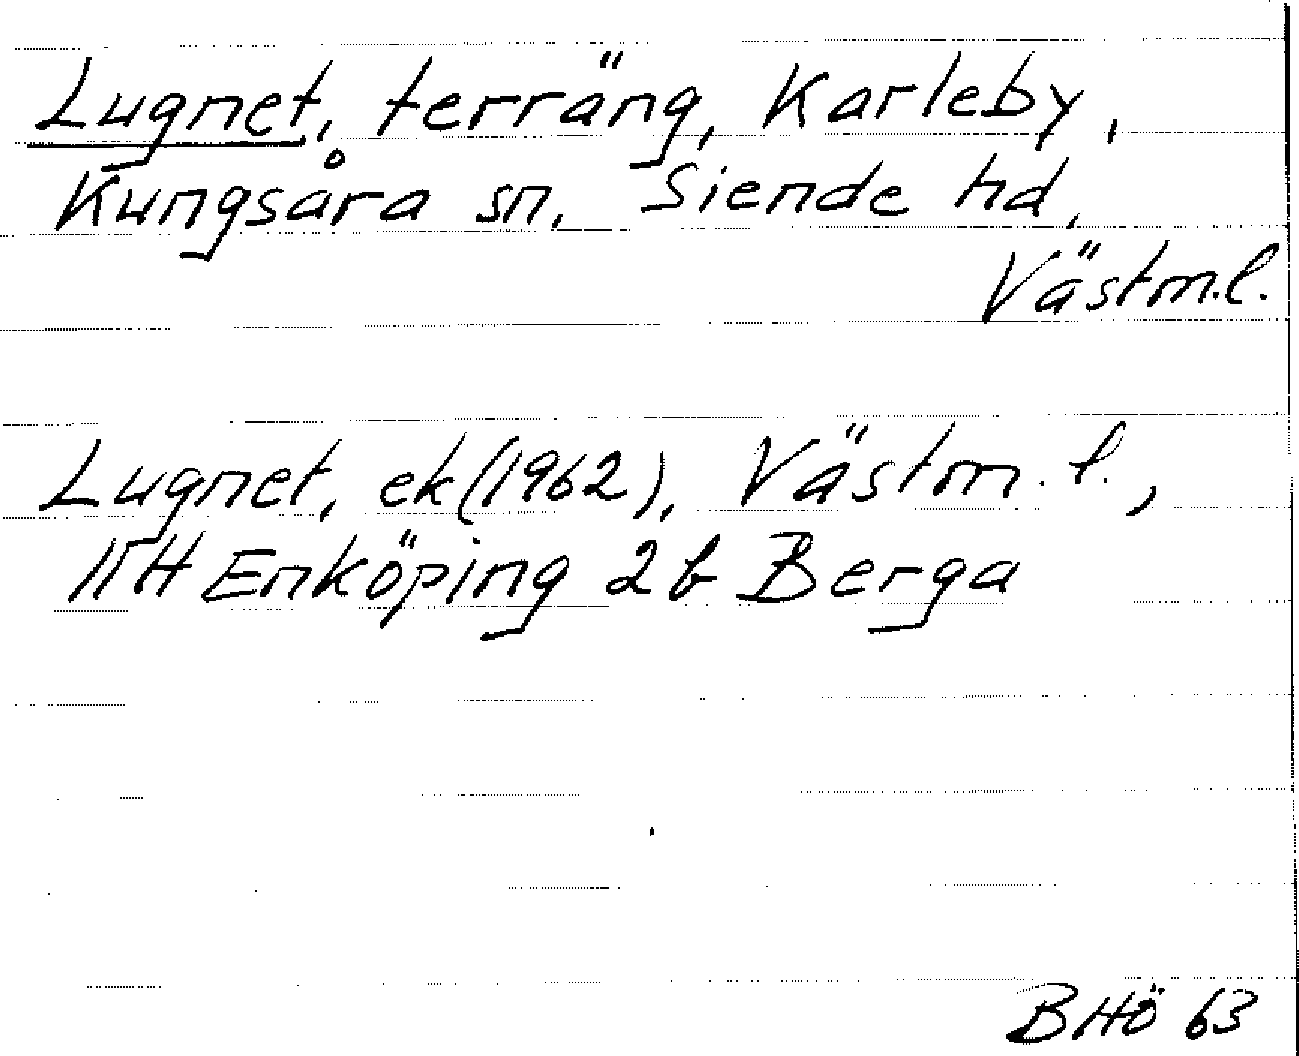 Lugnet, terräng, Karleby,
Kungsåra sn. Siende hd,
Västm.l.
Lugnet, ek (1962), Västm.l.,
11H Enköping 2b Berga
BHÖ 63